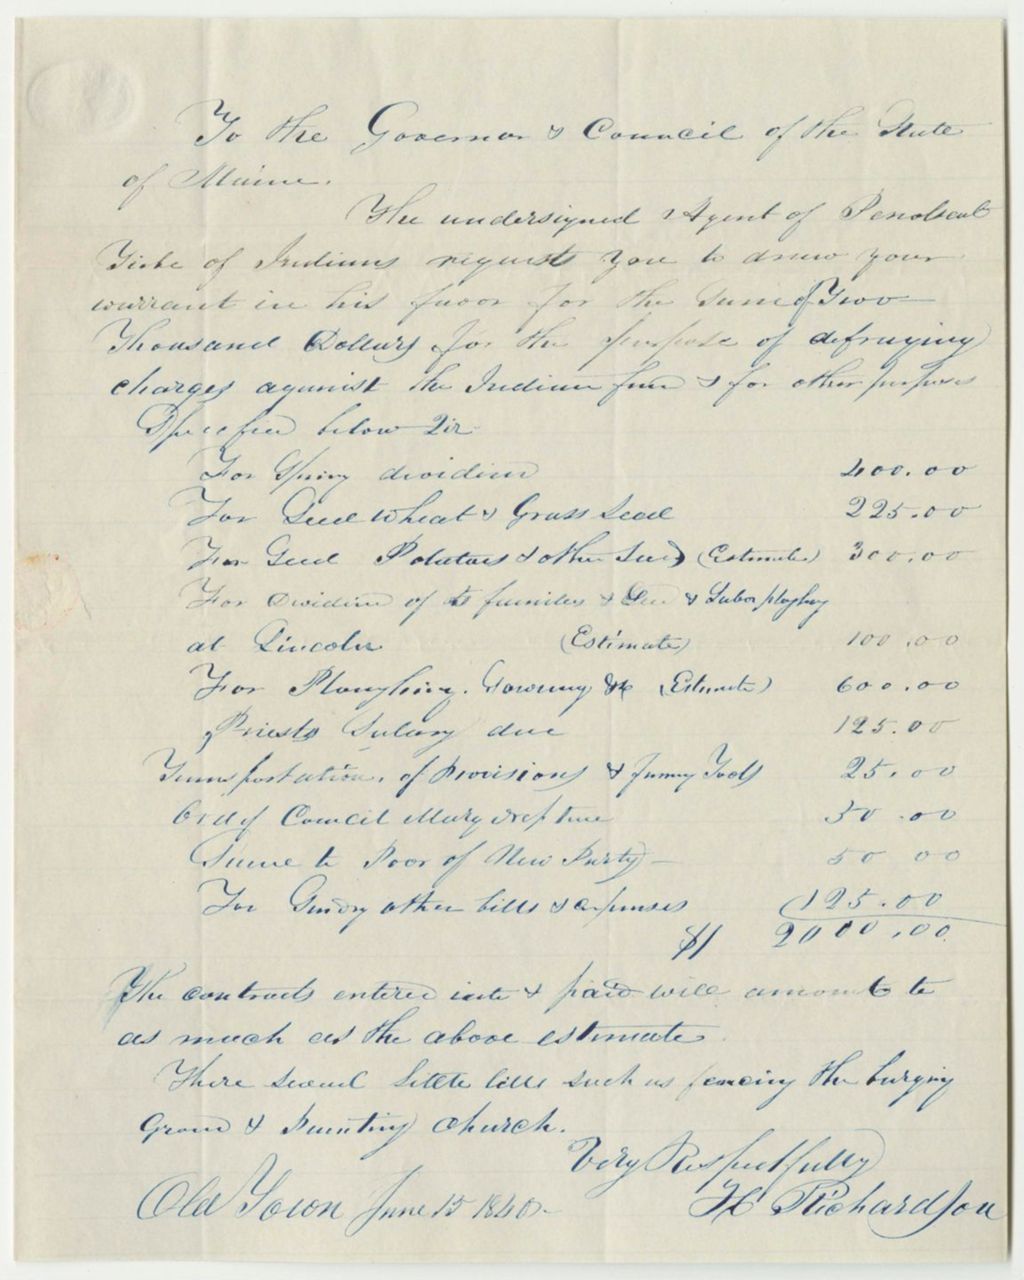 To the Governor & Council of the State
of Maine.
The undersigned Agent of Penobscot
Tribe of Indians requests you to draw your
warrant in his favor for the Sum of Two
Thousand Dollars for the purpose of defraying
charges against the Indian fund & for other purposes
Specified below Viz
For Spring dividend 400.00
For Seed Wheat & Grass Seed 225.00
For Seed Potatoes & other Seed (Estimate) 300.00
For dividend of families & Seed & Labor ploughing
at Lincoln (Estimate) 100.00
For Ploughing, Sowing &c (Estimate) 600.00
Priests Salary due 125.00
Transportation, of Provisions & farming Tools 25.00
Ord of Council Mary Neptune 50.00
Same to Poor of New Party 50 00
For Sundry other bills & expenses 125.00
$ 2000.00
The contracts entered into & paid will amount to
as much as the above estimate.
There several little bills such as fencing the burying
Ground & Painting church.
Very Respectfully
Old Town June 15 1840 H Richardson